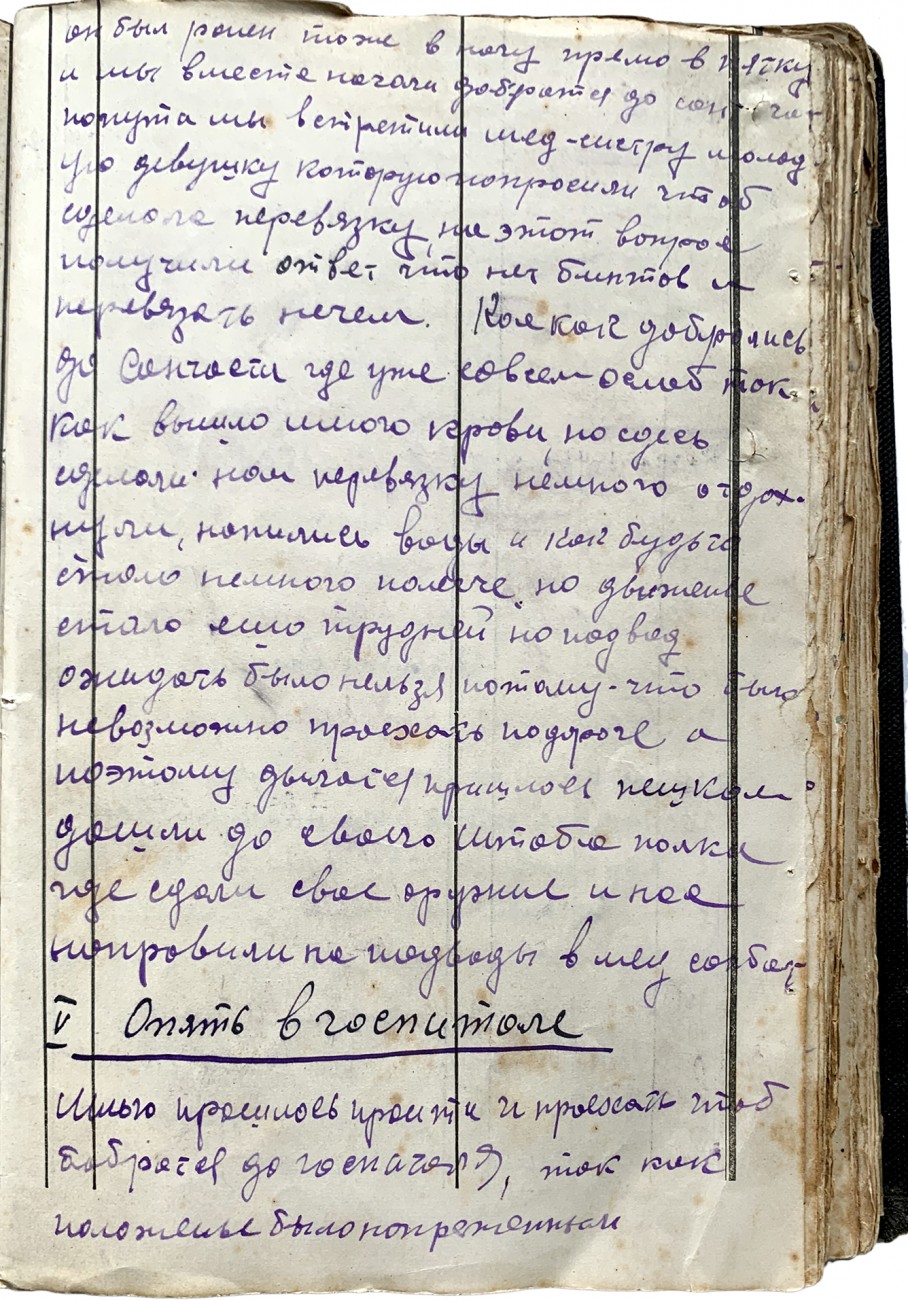 он был ранен тоже в ногу прямо в пятку
и мы вместе начали добратся до сан час-
попути мы встретили мед-систру молод-
ую девушку которую попросили чтоб
сделала перевязку, на этот вопрос
получили ответ что нет бинтов и
перевязать нечем. Кое как добрались
до Санчасти где уже совсем ослаб так-
как вышло много крови, но сдесь
сделали нам перевязку немного отдох-
нули, напились воды и как будьто
стало немного полегче, но движенье
стало ешо трудней но подвод
ожидать было нельзя потому-что было
невозможно проехать подороге а
поэтому двигатся пришлось пешком
дошли до своего штаба полка
где сдали свое оружие и нас
направили на подводы в мед санбат
V Опять в госпитале
Много прошлось пройти и проехать чтоб
добратся до госпиталя, так как
положенье было напреженным